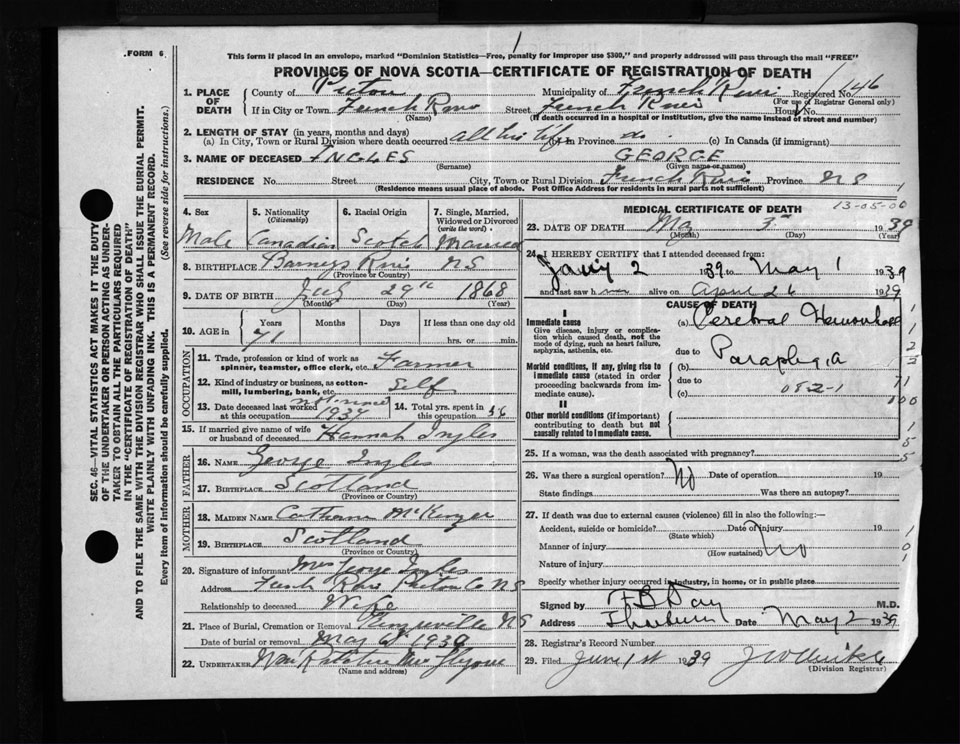 FORM 6
1
This form if placed in an envelope, marked "Dominion Statistics—Free, penalty for improper use $300," and properly addressed will pass through the mail "FREE"
PROVINCE OF NOVA SCOTIA—CERTIFICATE OF REGISTRATION OF DEATH
1. PLACE OF DEATH
County of Pictou Municipality of French River Registered No. 146
(For use of Registrar General only)
If in City or Town French River Street French River House No.
(Name) (If death occurred in a hospital or institution, give the name instead of street and number)
2. LENGTH OF STAY (in years, months and days)
(a) In City, Town or Rural Division where death occurred all his life (b) In Province do. (c) In Canada (if immigrant)
3. NAME OF DECEASED INGLES GEORGE
(Surname) (Given name or names)
RESIDENCE No. Street City, Town or Rural Division French River Province NS
(Residence means usual place of abode. Post Office Address for residents in rural parts not sufficient)
4. Sex Male
5. Nationality (Citizenship) Canadian
6. Racial Origin Scotch
7. Single, Married, Widowed or Divorced (write the word) Married
8. BIRTHPLACE Barneys River NS
(Province or Country)
9. DATE OF BIRTH 29th 1868
(Month) (Day) (Year)
10. AGE in Years Months Days If less than one day old
71 hrs. or min.
OCCUPATION
11. Trade, profession or kind of work as spinner, teamster, office clerk, etc. Farmer
12. Kind of industry or business, as cotton-mill, lumbering, bank, etc. Self
13. Date deceased last worked at this occupation 1937
14. Total yrs. spent in this occupation 56
15. If married give name of wife or husband of deceased Hannah Ingles
FATHER
16. NAME George Ingles
17. BIRTHPLACE Scotland
(Province or Country)
MOTHER
18. MAIDEN NAME
19. BIRTHPLACE Scotland
(Province or Country)
20. Signature of informant Mrs George Ingles
Address French River Pictou Co NS
Relationship to deceased Wife
21. Place of Burial, Cremation or Removal NS
Date of burial or removal May 6th 1939
22. UNDERTAKER
(Name and address)
MEDICAL CERTIFICATE OF DEATH
13-05-06
23. DATE OF DEATH May 3rd 1939
(Month) (Day) (Year)
24. I HEREBY CERTIFY that I attended deceased from:
Jany 2 1939 to May 1 1939
and last saw h alive on April 26 1939
CAUSE OF DEATH
I
Immediate cause
Give disease, injury or complication which caused death, not the mode of dying, such as heart failure, asphyxia, asthenia, etc.
(a) Cerebral Hemorrhage
due to
Morbid conditions, if any, giving rise to immediate cause (stated in order proceeding backwards from immediate cause).
(b) Paraplegia
due to
082-1
(c)
II
Other morbid conditions (if important) contributing to death but not causally related to immediate cause.
25. If a woman, was the death associated with pregnancy?
26. Was there a surgical operation? No Date of operation 19
State findings Was there an autopsy?
27. If death was due to external causes (violence) fill in also the following:—
Accident, suicide or homicide? Date of injury 19
(State which)
Manner of injury No
(How sustained)
Nature of injury
Specify whether injury occurred in industry, in home, or in public place
Signed by F B Day M.D.
Address Thorburn Date May 2 1939
28. Registrar's Record Number
29. Filed June 1st 1939
(Division Registrar)
SEC. 46—VITAL STATISTICS ACT MAKES IT THE DUTY OF THE UNDERTAKER OR PERSON ACTING AS UNDERTAKER TO OBTAIN ALL THE PARTICULARS REQUIRED IN THE "CERTIFICATE OF REGISTRATION OF DEATH" AND TO FILE THE SAME WITH THE DIVISION REGISTRAR WHO SHALL ISSUE THE BURIAL PERMIT.
WRITE PLAINLY WITH UNFADING INK. THIS IS A PERMANENT RECORD.
Every item of information should be carefully supplied. (See reverse side for instructions.)